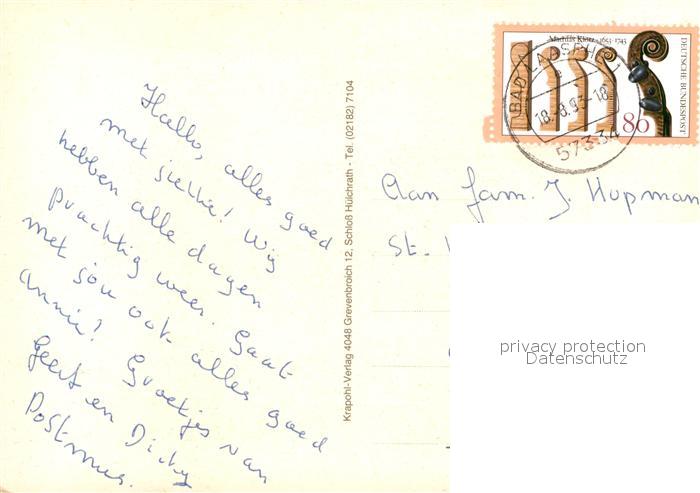 Hallo, alles goed
met jullie! Wij
hebben alle dagen
prachtig weer. Gaat
met jou ook alles goed
Annie! Groetjes van
Geert en Dicky
Postmus.
Krapohl-Verlag 4048 Grevenbroich 12, Schloß Hülchrath - Tel. (02182) 7104
Mathias Klotz 1653-1743
DEUTSCHE BUNDESPOST
80
BAD LAASPHE 1
18.-8.93.-18
57334
Aan fam. J. Hopman
St.
privacy protection
Datenschutz